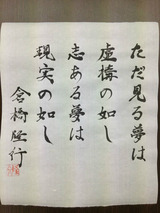 ただ見る夢は
虚構の如し
志ある夢は
現実の如し
倉橋隆行